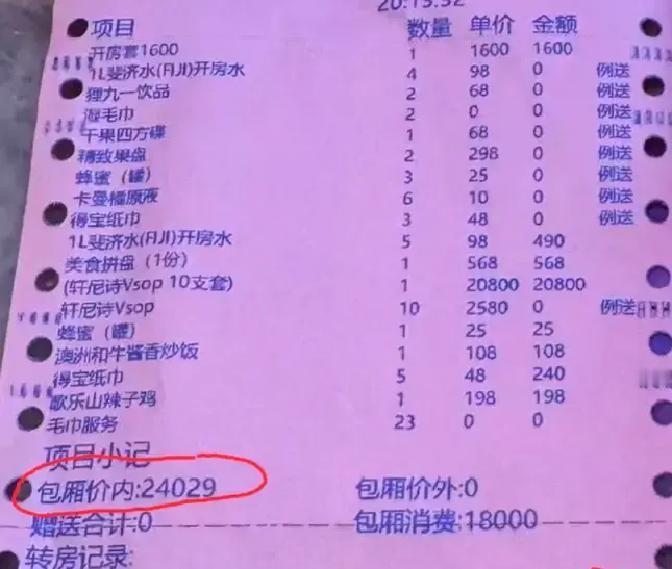 20:15:32
项目 数量 单价 金额
开房套1600 1 1600 1600
1L斐济水(FIJI)开房水 4 98 0 例送
狸九一饮品 2 68 0 例送
海毛巾 2 0 0 例送
干果四方碟 1 68 0 例送
精致果盘 2 298 0 例送
蜂蜜（罐） 3 25 0 例送
卡曼橘原液 6 10 0 例送
得宝纸巾 3 48 0 例送
1L斐济水(FIJI)开房水 5 98 490
美食拼盘（1份） 1 568 568
(轩尼诗Vsop 10支套) 1 20800 20800
轩尼诗Vsop 10 2580 0 例送
蜂蜜（罐） 1 25 25
澳洲和牛酱香炒饭 1 108 108
得宝纸巾 5 48 240
歌乐山辣子鸡 1 198 198
毛巾服务 23 0 0
项目小记
包厢价内:24029 包厢价外:0
赠送合计:0 包厢消费:18000
转房记录: